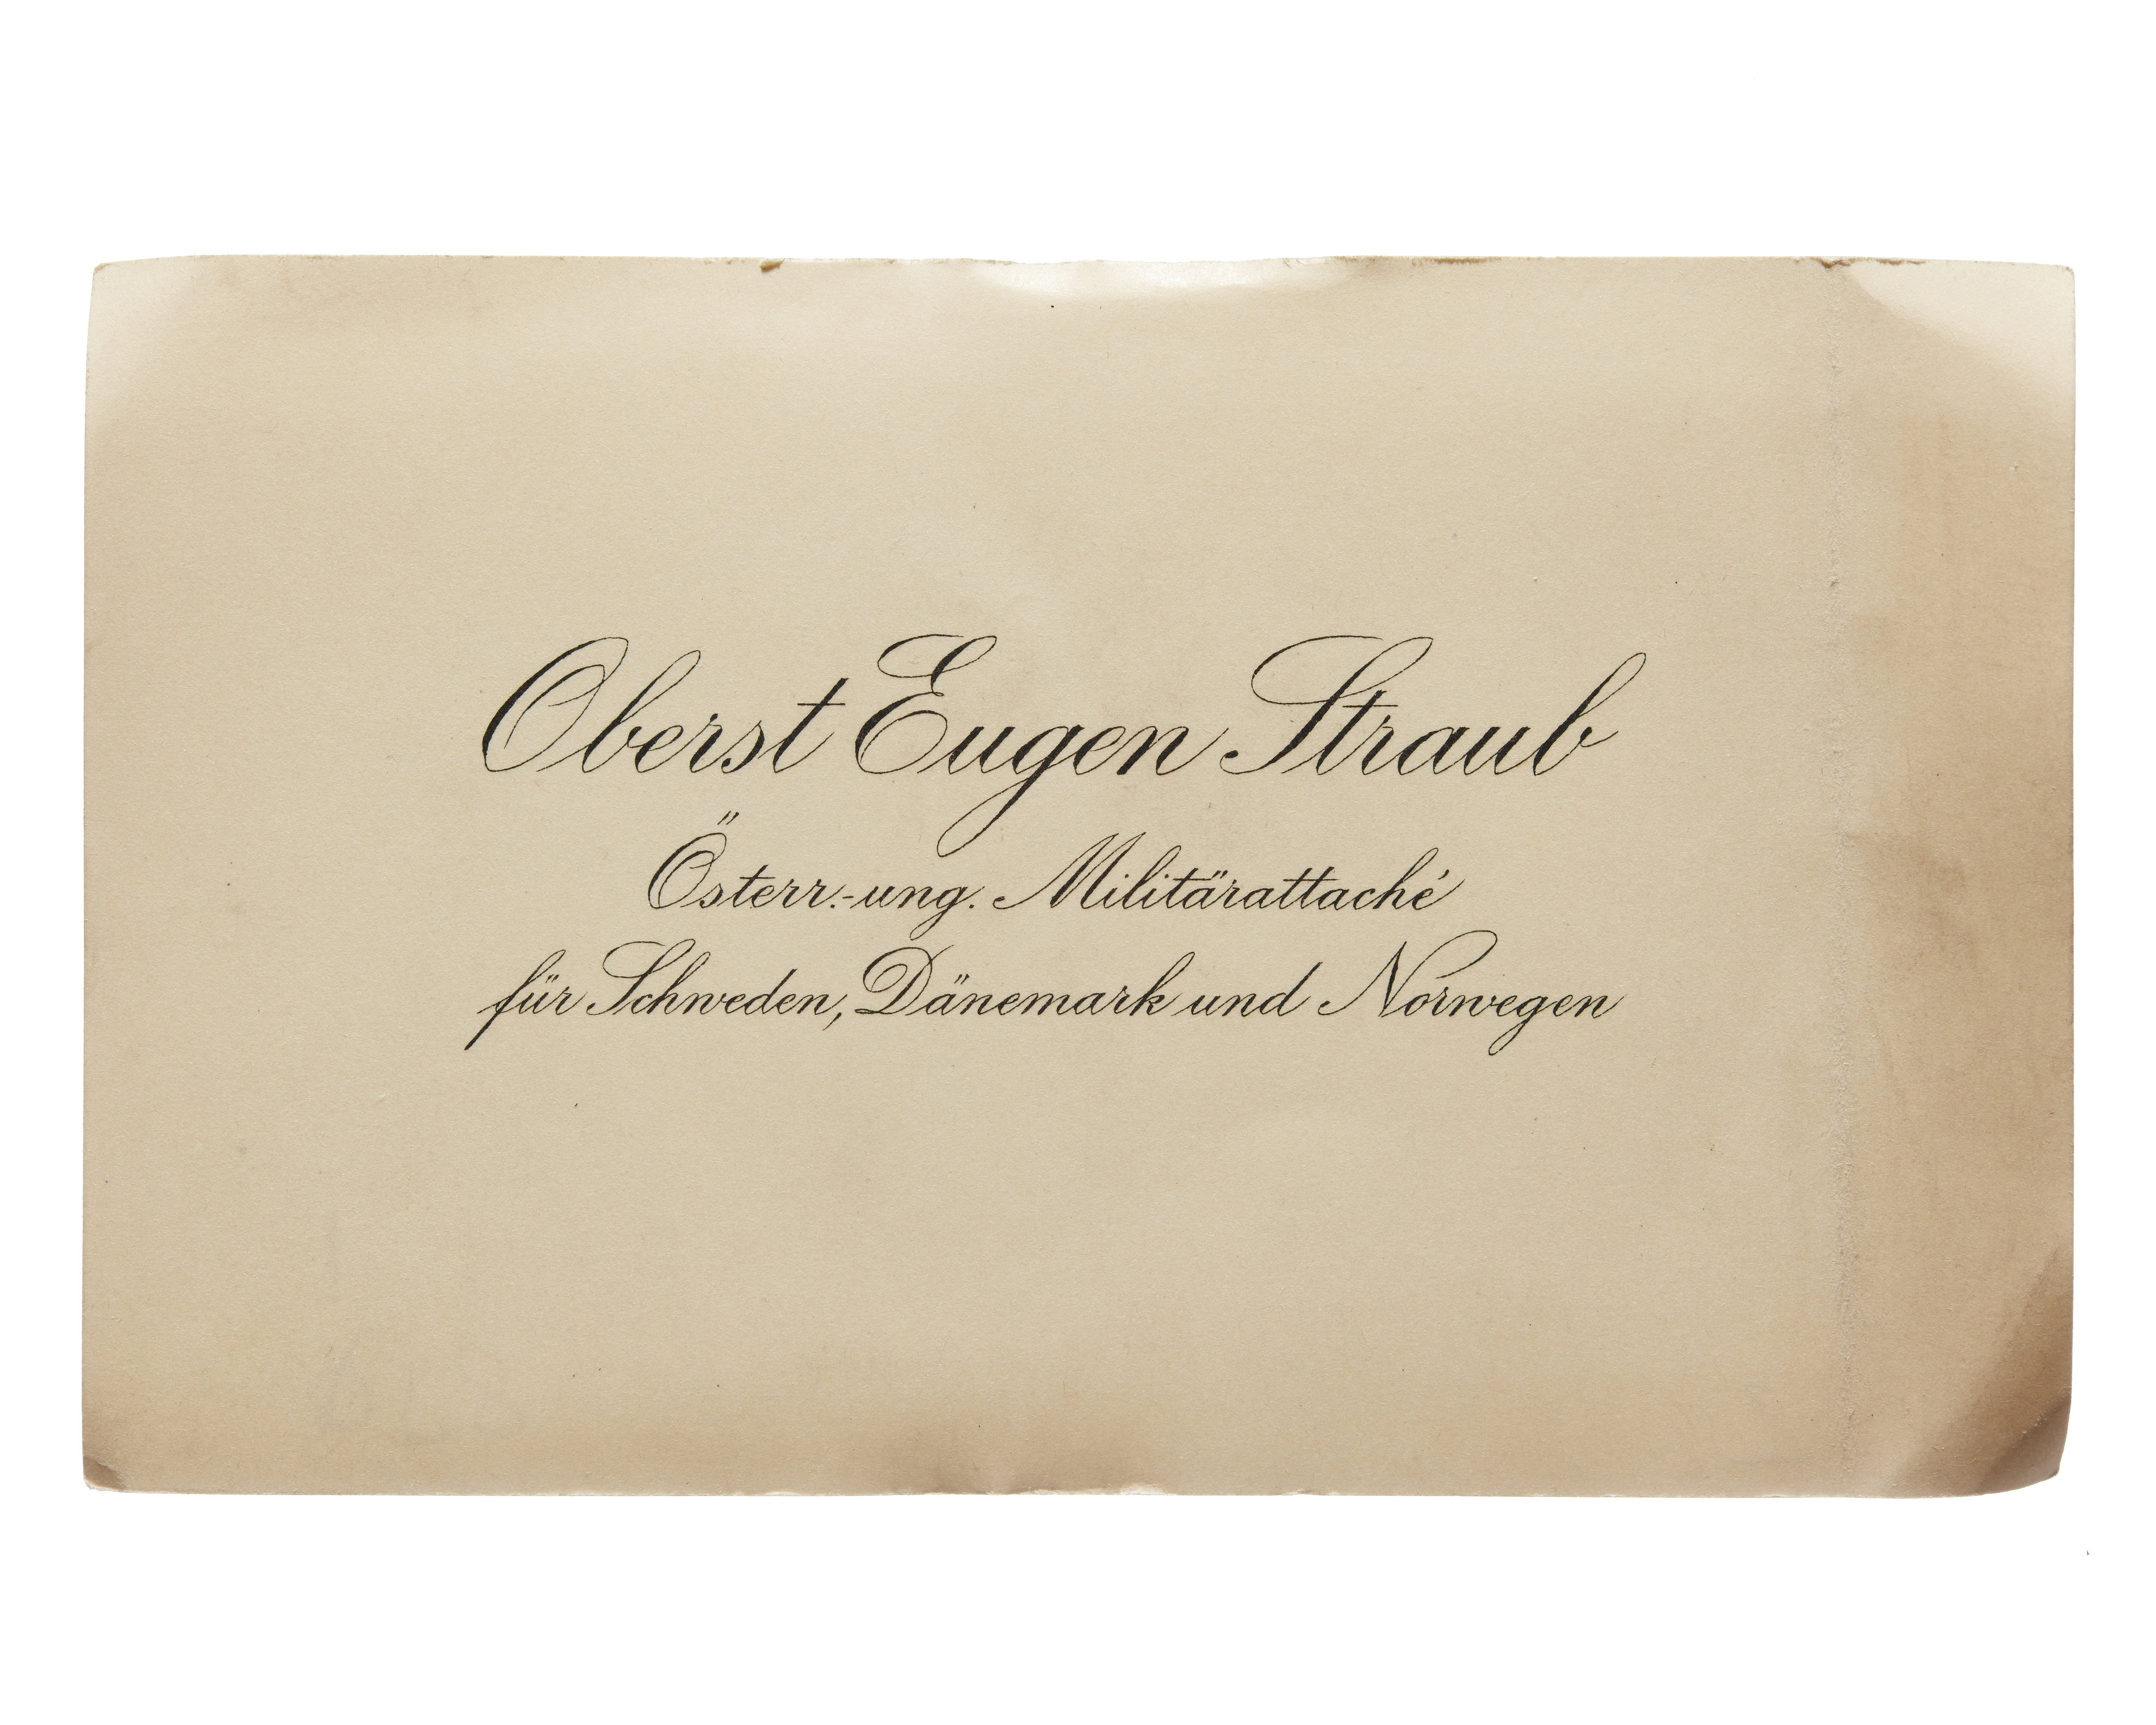 Oberst Eugen Straub
Österr.-ung. Militärattaché
für Schweden, Dänemark und Norwegen